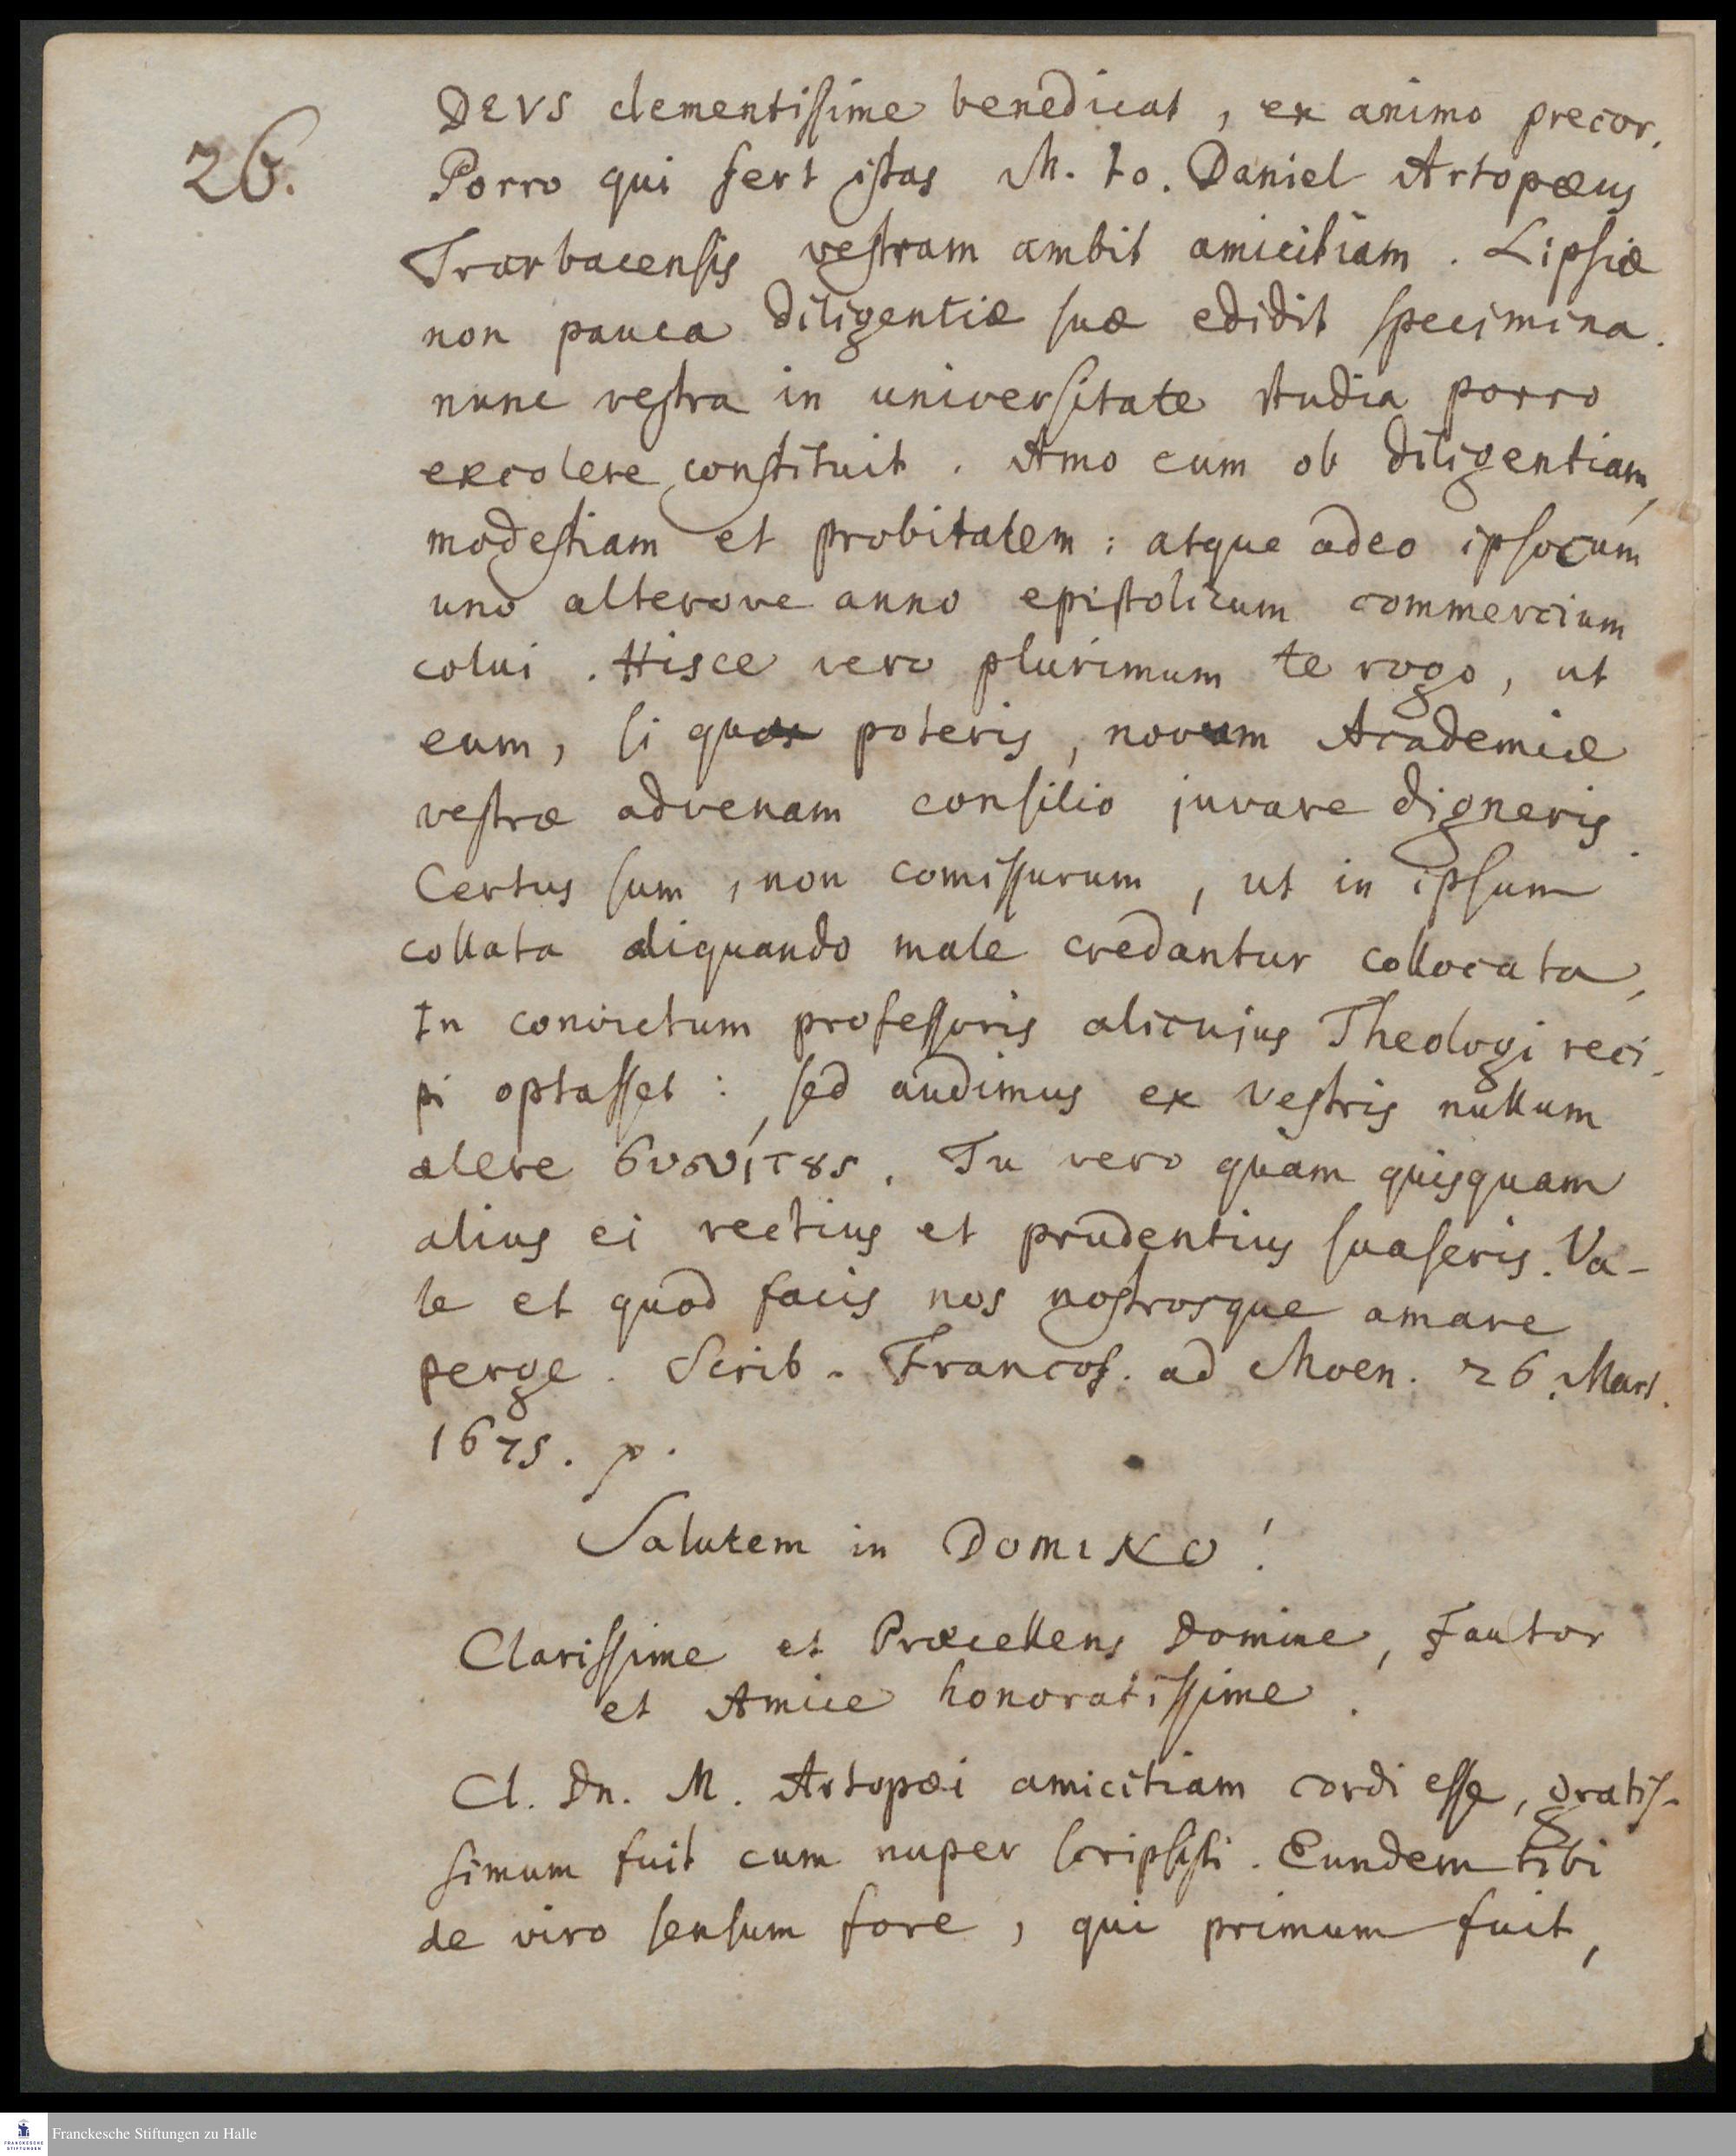 26.
DEVS clementissime benedicat, ex animo precor.
Porro qui fert istas M. Io. Daniel Artopæus
Trarbacensis vestram ambit amicitiam. Lipsiæ
non pauca diligentiæ suæ edidit specimina.
nunc vestra in universitate studia porro
excolere constituit. Amo eum ob diligentiam,
modestiam et probitatem: atque adeo ipsocum
uno alterove anno epistolicum commercium
colui. Hisce vero plurimum te rogo, ut
eum, si poteris, novum Academiæ
vestræ advenam consilio juvare digneris.
Certus sum, non comissurum, ut in ipsum
collata aliquando male credantur collocata,
In convictum professoris alicujus Theologi reci-
pi optasset: sed audimus ex vestris nullum
alere συσσίτȣς. Tu vero quam quisquam
alius ei rectius et prudentius suaseris. Va-
le et quod facis nos nostrosque amare
perge. Scrib. Francof. ad Moen. 26. Mart.
1675. p.
Salutem in DOMINO!
Clarissime et Præcellens Domine, Fautor
et Amice honoratissime.
Cl. Dn. M. Artopæi amicitiam cordi esse, gratis-
simum fuit cum nuper scripsisti. Eundem tibi
de viro sensum fore, qui primum fuit,
Franckesche Stiftungen zu Halle
FRANCKESCHE
STIFTUNGEN